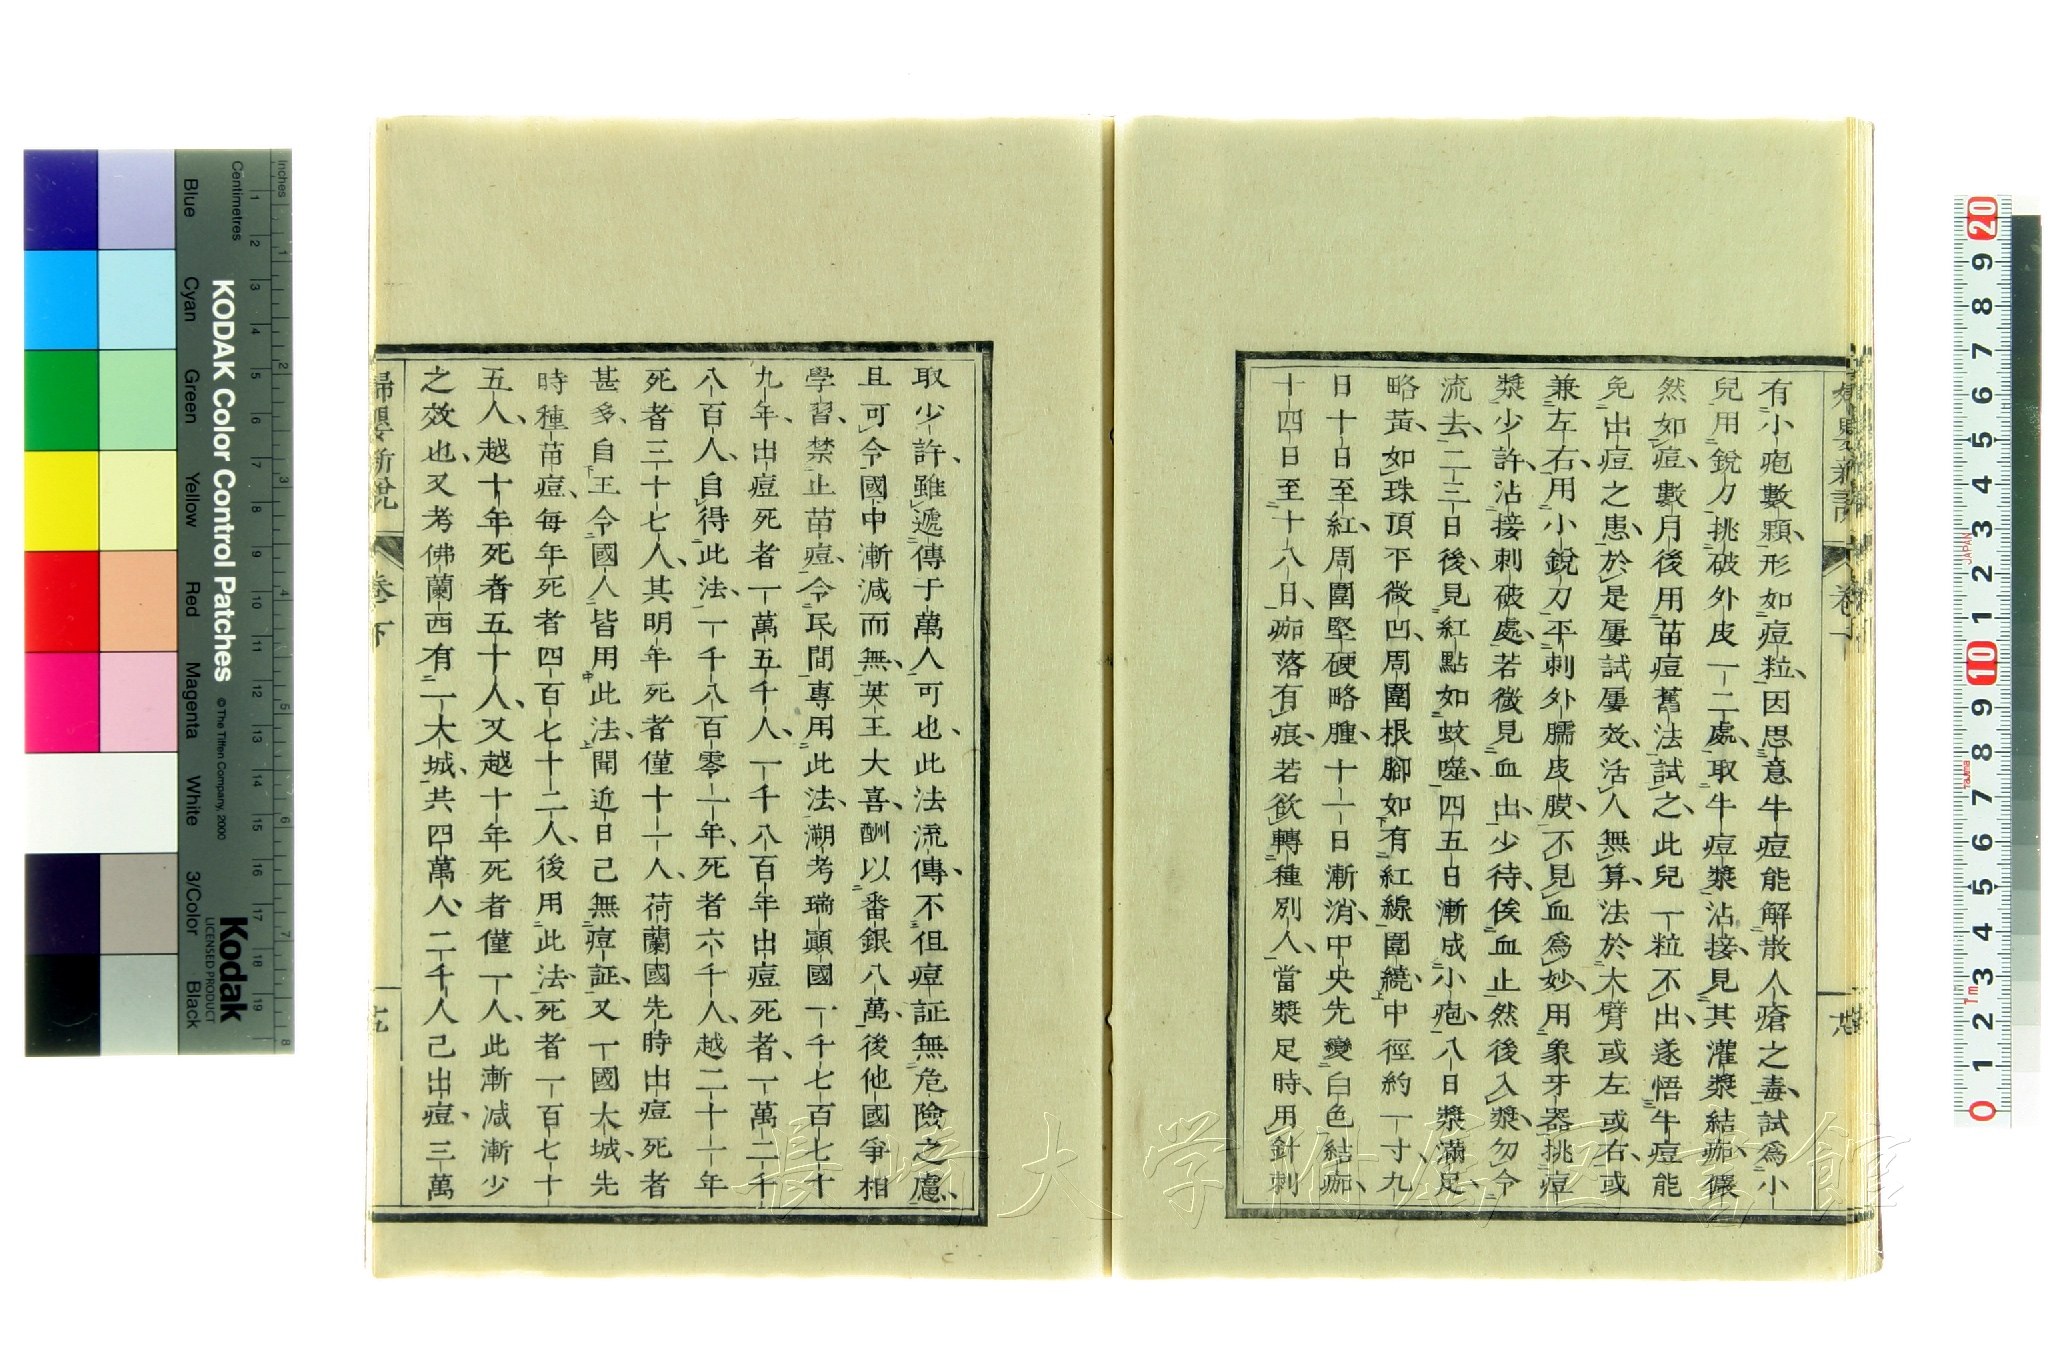 有小疱數顆形如痘粒因思意牛痘能解散人瘡之毒試爲小
兒用銳刀挑破外皮一二處取牛痘漿沾接見其灌漿結痂儼
然如痘數月後用苗痘舊法試之此兒一粒不出遂悟牛痘能
免出痘之患於是屢試屢效活人無算法於大臂或左或右或
兼左右用小銳刀平刺外臑皮膜不見血爲妙用象牙器挑痘
漿少許沾接刺破處若微見血出少待俟血止然後入漿勿令
流去二三日後見紅點如蚊噬四五日漸成小疱八日漿滿足
略黃如珠頂平微凹周圍根腳如有紅線圍繞中徑約一寸九
日十日至紅周圍堅硬略腫十一日漸消中央先變白色結痂
十四日至十八日痂落有痕若欲轉種別人當漿足時用針刺
取少許雖遞傳于萬人可也此法流傳不但痘証無危險之慮
且可令國中漸減而無英王大喜酬以番銀八萬後他國爭相
學習禁止苗痘令民間專用此法溯考瑞顚國一千七百七十
九年出痘死者一萬五千人一千八百年出痘死者一萬二千
八百人自得此法一千八百零一年死者六千人越二十一年
死者三十七人其明年死者僅十一人荷蘭國先時出痘死者
甚多自王令國人皆用此法聞近日已無痘証又一國大城先
時種苗痘每年死者四百七十二人後用此法死者一百七十
五人越十年死者五十人又越十年死者僅一人此漸減漸少
之效也又考佛蘭西有二大城共四萬人二千人已出痘三萬
婦嬰新說
卷下
KODAK Color Control Patches
© The Tiffen Company, 2000
Kodak
LICENSED PRODUCT
Inches
Centimetres
Blue
Cyan
Green
Yellow
Red
Magenta
White
3/Color
Black
長崎大学附属図書館